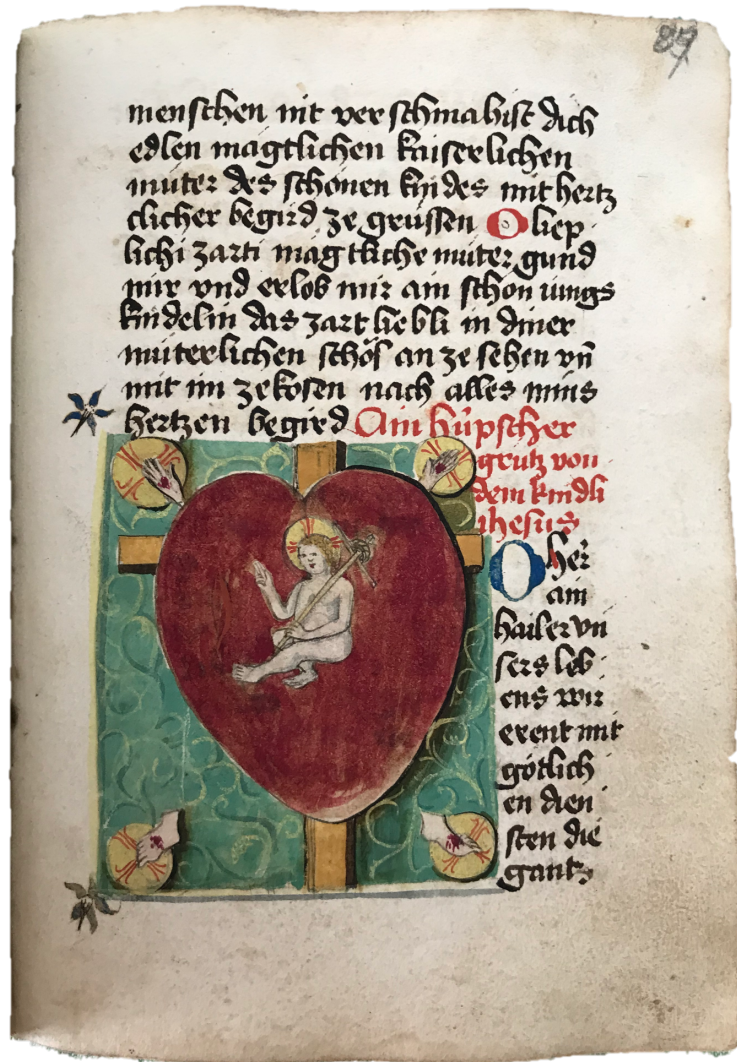 87
menschen nit verschmahist dich
edlen magtlichen kaiserlichen
mũter des schonen kindes mit hertz
clicher begird ze grüssen O liep
lichi zarti magtliche mũter gund
mir vnd erlob mir ain schon iungs
kindelin das zart liebli in diner
mũterlichen schos an ze sehen vn̄
mit im ze kosen nach alles mins
hertzen begird Ain hüpscher
grutz von
dem kindli
ihesus
O her
ain
hailer vn
sers leb
ens wir
erent mit
götlich
en dien
sten die
gantz